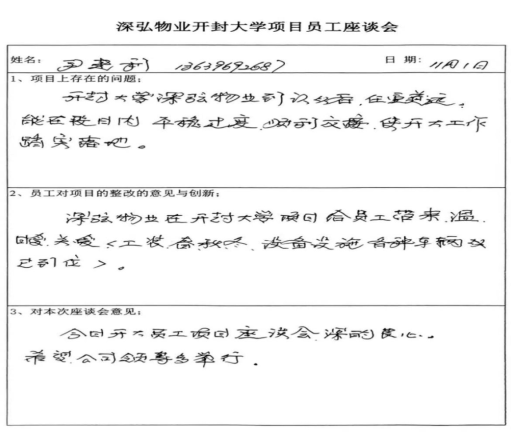 深弘物业开封大学项目员工座谈会
姓名：尹建利 13639692687 日期：11月1日
1、项目上存在的问题：
开封大学深弘物业到以后，在
能在段日内平稳过度，顺利交接，使开大工作
踏实落地。
2、员工对项目的整改的意见与创新：
深弘物业在开封大学项目给员工带来温
暖关爱<工装春秋冬，设备设施各种车辆
到位>。
3、对本次座谈会意见：
今日开大员工项目座谈会深的民心。
希望公司领导多举行。